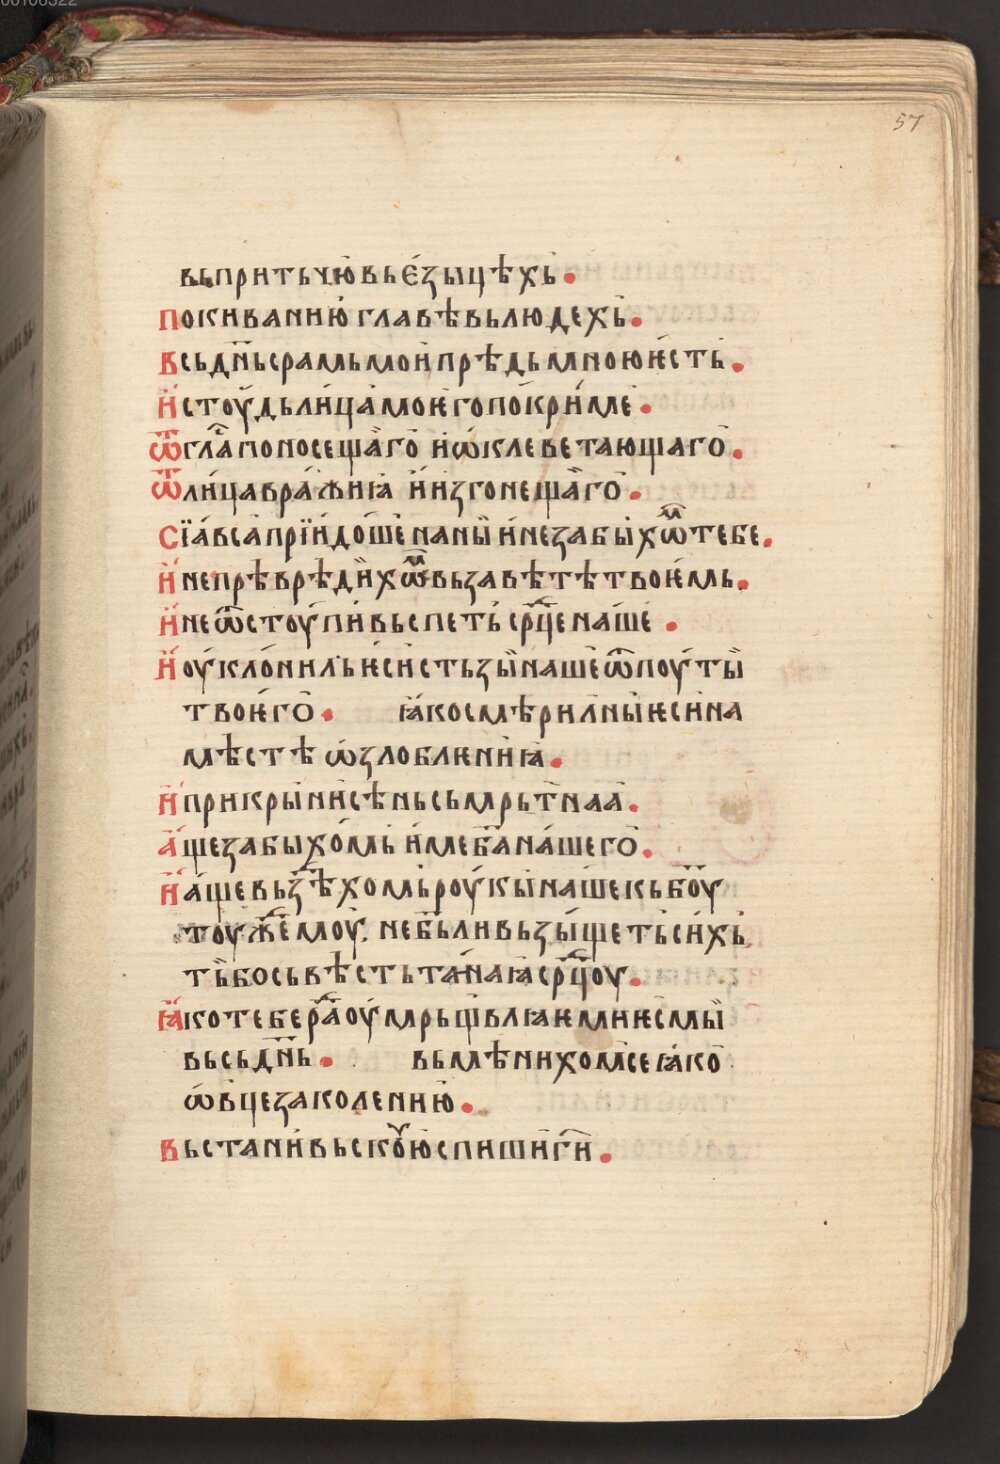 00106322
57
вьпритьчю́вьє҆́зыцѣхь.
покиванию́главѣвьлюдехь.
всьдн҃ьсрамьмои҆прѣдьмною҆ѥ҆сть.
и҆стоу́дьли́ца́моѥ҆гопокри́ме.
ѿгла҃поносеща́го и҆ѡ҆́клеветающаго.
ѿли́цавра́жиꙗ и҆и҆згонеща́го.
сїа́всапрїидо́шенаныи҆незабы́хѡⷨтебе.
и҆непрѣврѣдихѡⷨвьзавѣтѣтвоѥ҆мь.
и҆неѿстоупи́вьспеть срⷣценаше.
и҆оу҆клони́льѥ҆систьзы́нашеѿпоуты̀
твоѥ҆го. ꙗ҆космѣрилны́ѥ҆сина
мѣстѣ ѡ҆зло́блѥниꙗ.
и҆прикрыни́сѣньсьмрьтнаа.
а҆щезабыхо́мь и҆мебг҃ана́шего.
и҆а҆щевьздѣхомьроу́кынашекьбо҃у
тоуждемоу, небг҃ьливьзы́щетьси́хь,
тьбосьвѣстьта́йнаꙗсрⷣцоу.
ꙗ҆котеберⷣаоу҆мрьщвлꙗѥмиѥ҆смы̀
вьсьдн҃ь. вьмѣнихомсеꙗ҆ко
ѡ҆́вцезаколению.
вьстани́вьскоу́юспишигⷭ҇и.